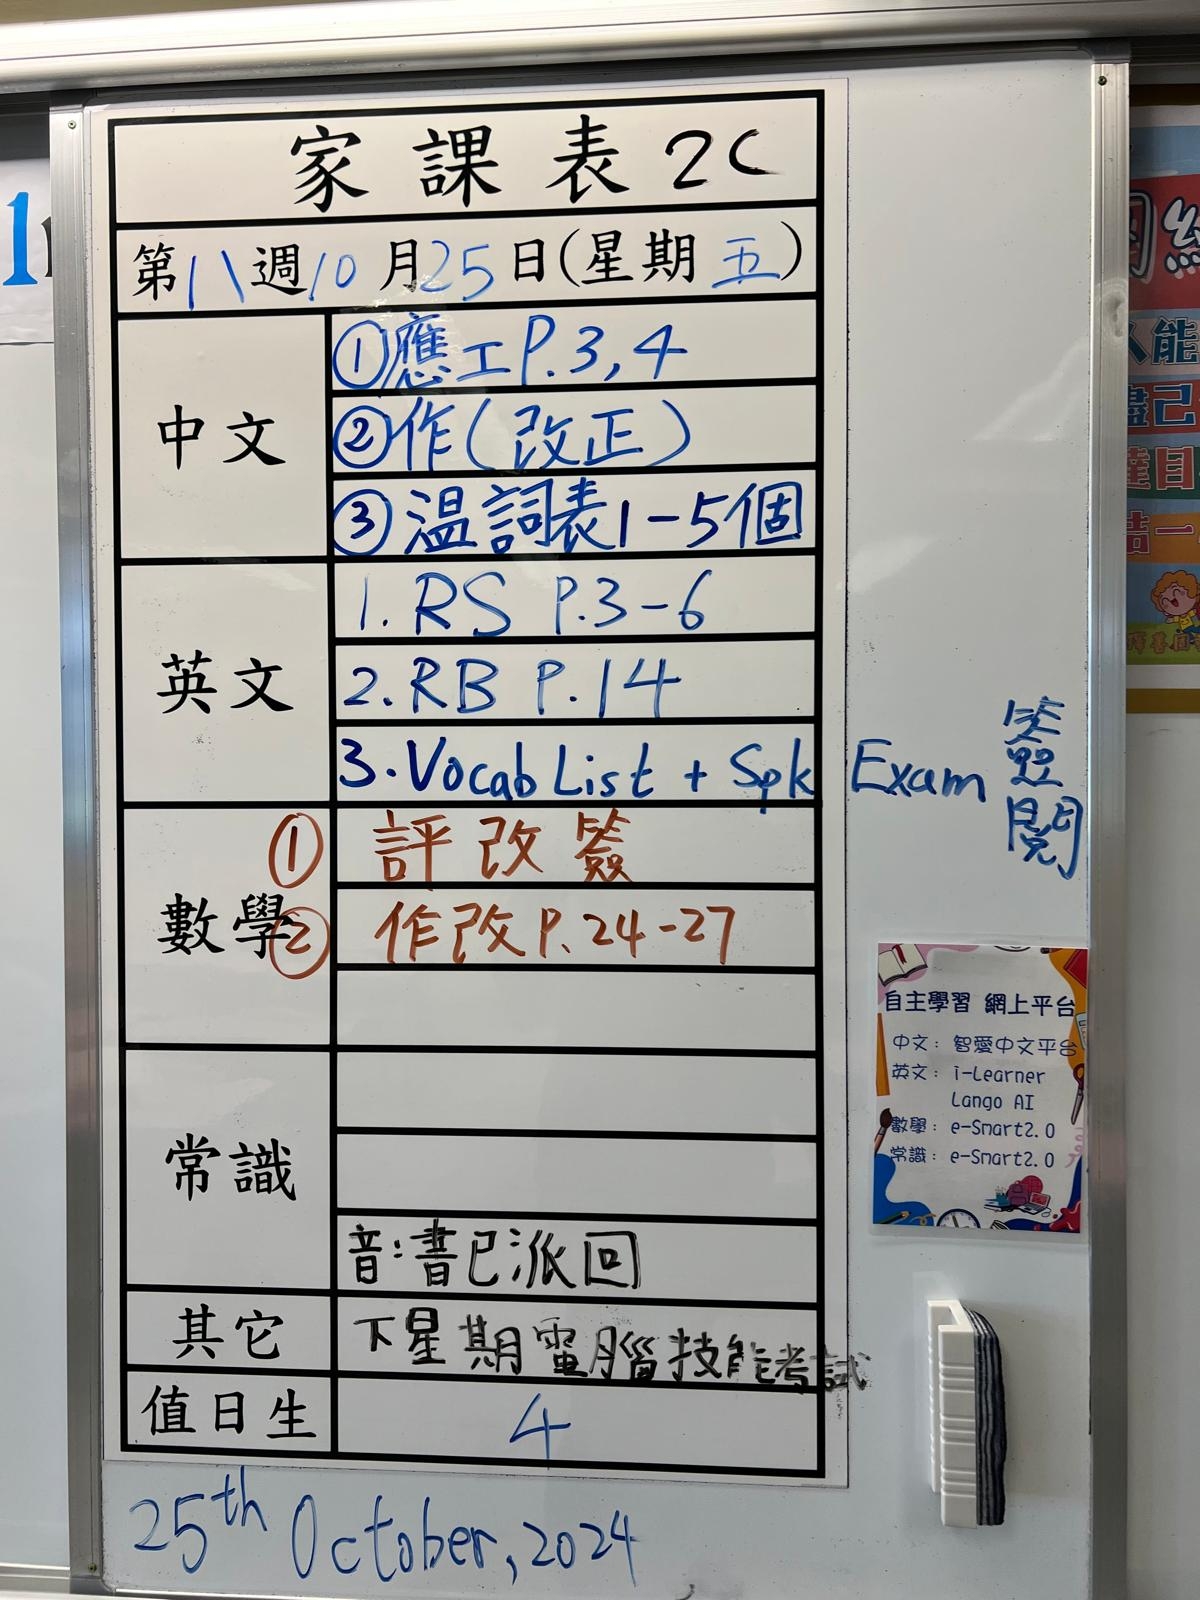 家課表 2C
第八週10月25日(星期五)
中文
①應工P.3,4
②作(改正)
③溫詞表1-5個
英文
1. RS P.3-6
2. RB P.14
3. Vocab List + Spk Exam 簽閱
數學
① 評改簽
② 作改P.24-27
常識
音:書已派回
其它
下星期電腦技能考試
值日生
4
25th October, 2024
自主學習 網上平台
中文: 智愛中文平台
英文: i-Learner
Lango AI
數學: e-Smart2.0
常識: e-Smart2.0